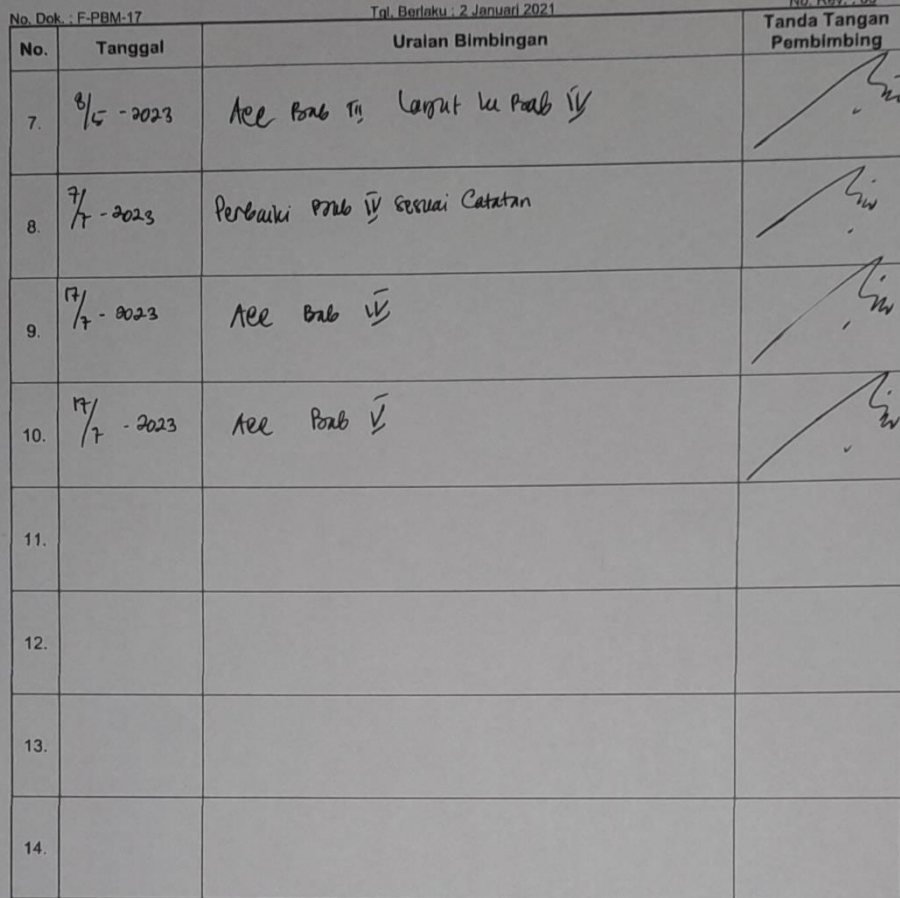 No. Dok. : F-PBM-17 Tgl. Berlaku : 2 Januari 2021 No. Rev. : 03
No. Tanggal Uraian Bimbingan Tanda Tangan
Pembimbing
7. 8/5 - 2023 Acc Bab III Lanjut ke Bab IV
8. 7/7 - 2023 Perbaiki Bab IV sesuai Catatan
9. 17/7 - 2023 Acc Bab IV
10. 17/7 - 2023 Acc Bab V
11.
12.
13.
14.